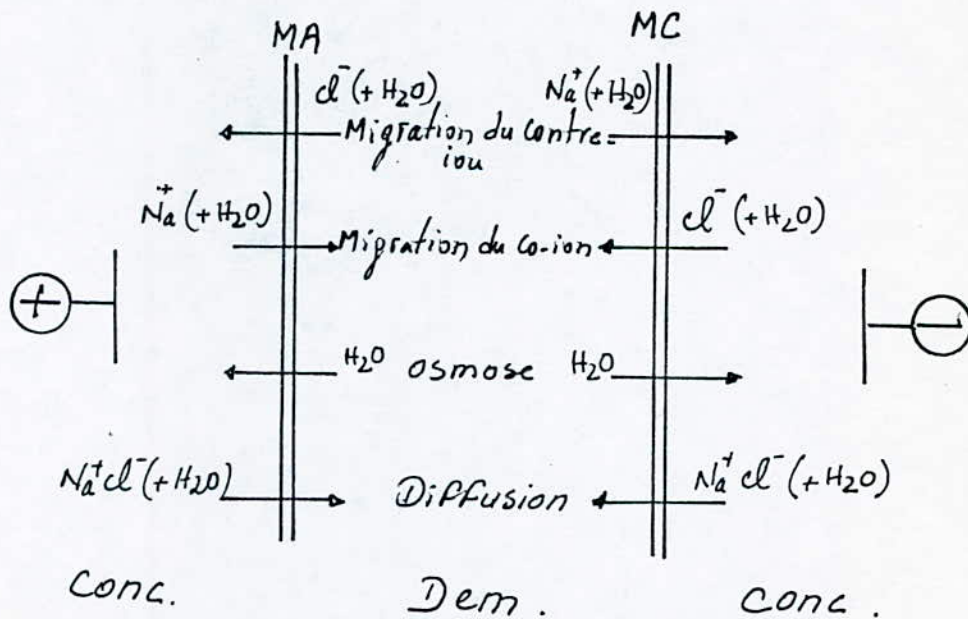 MA MC
Cl⁻(+H₂O) Na⁺(+H₂O)
Migration du contre-
iou
Na⁺(+H₂O) Cl⁻(+H₂O)
Migration du co-ion
+ −
H₂O osmose H₂O
Na⁺Cl⁻(+H₂O) Diffusion Na⁺Cl⁻(+H₂O)
Conc. Dem. Conc.